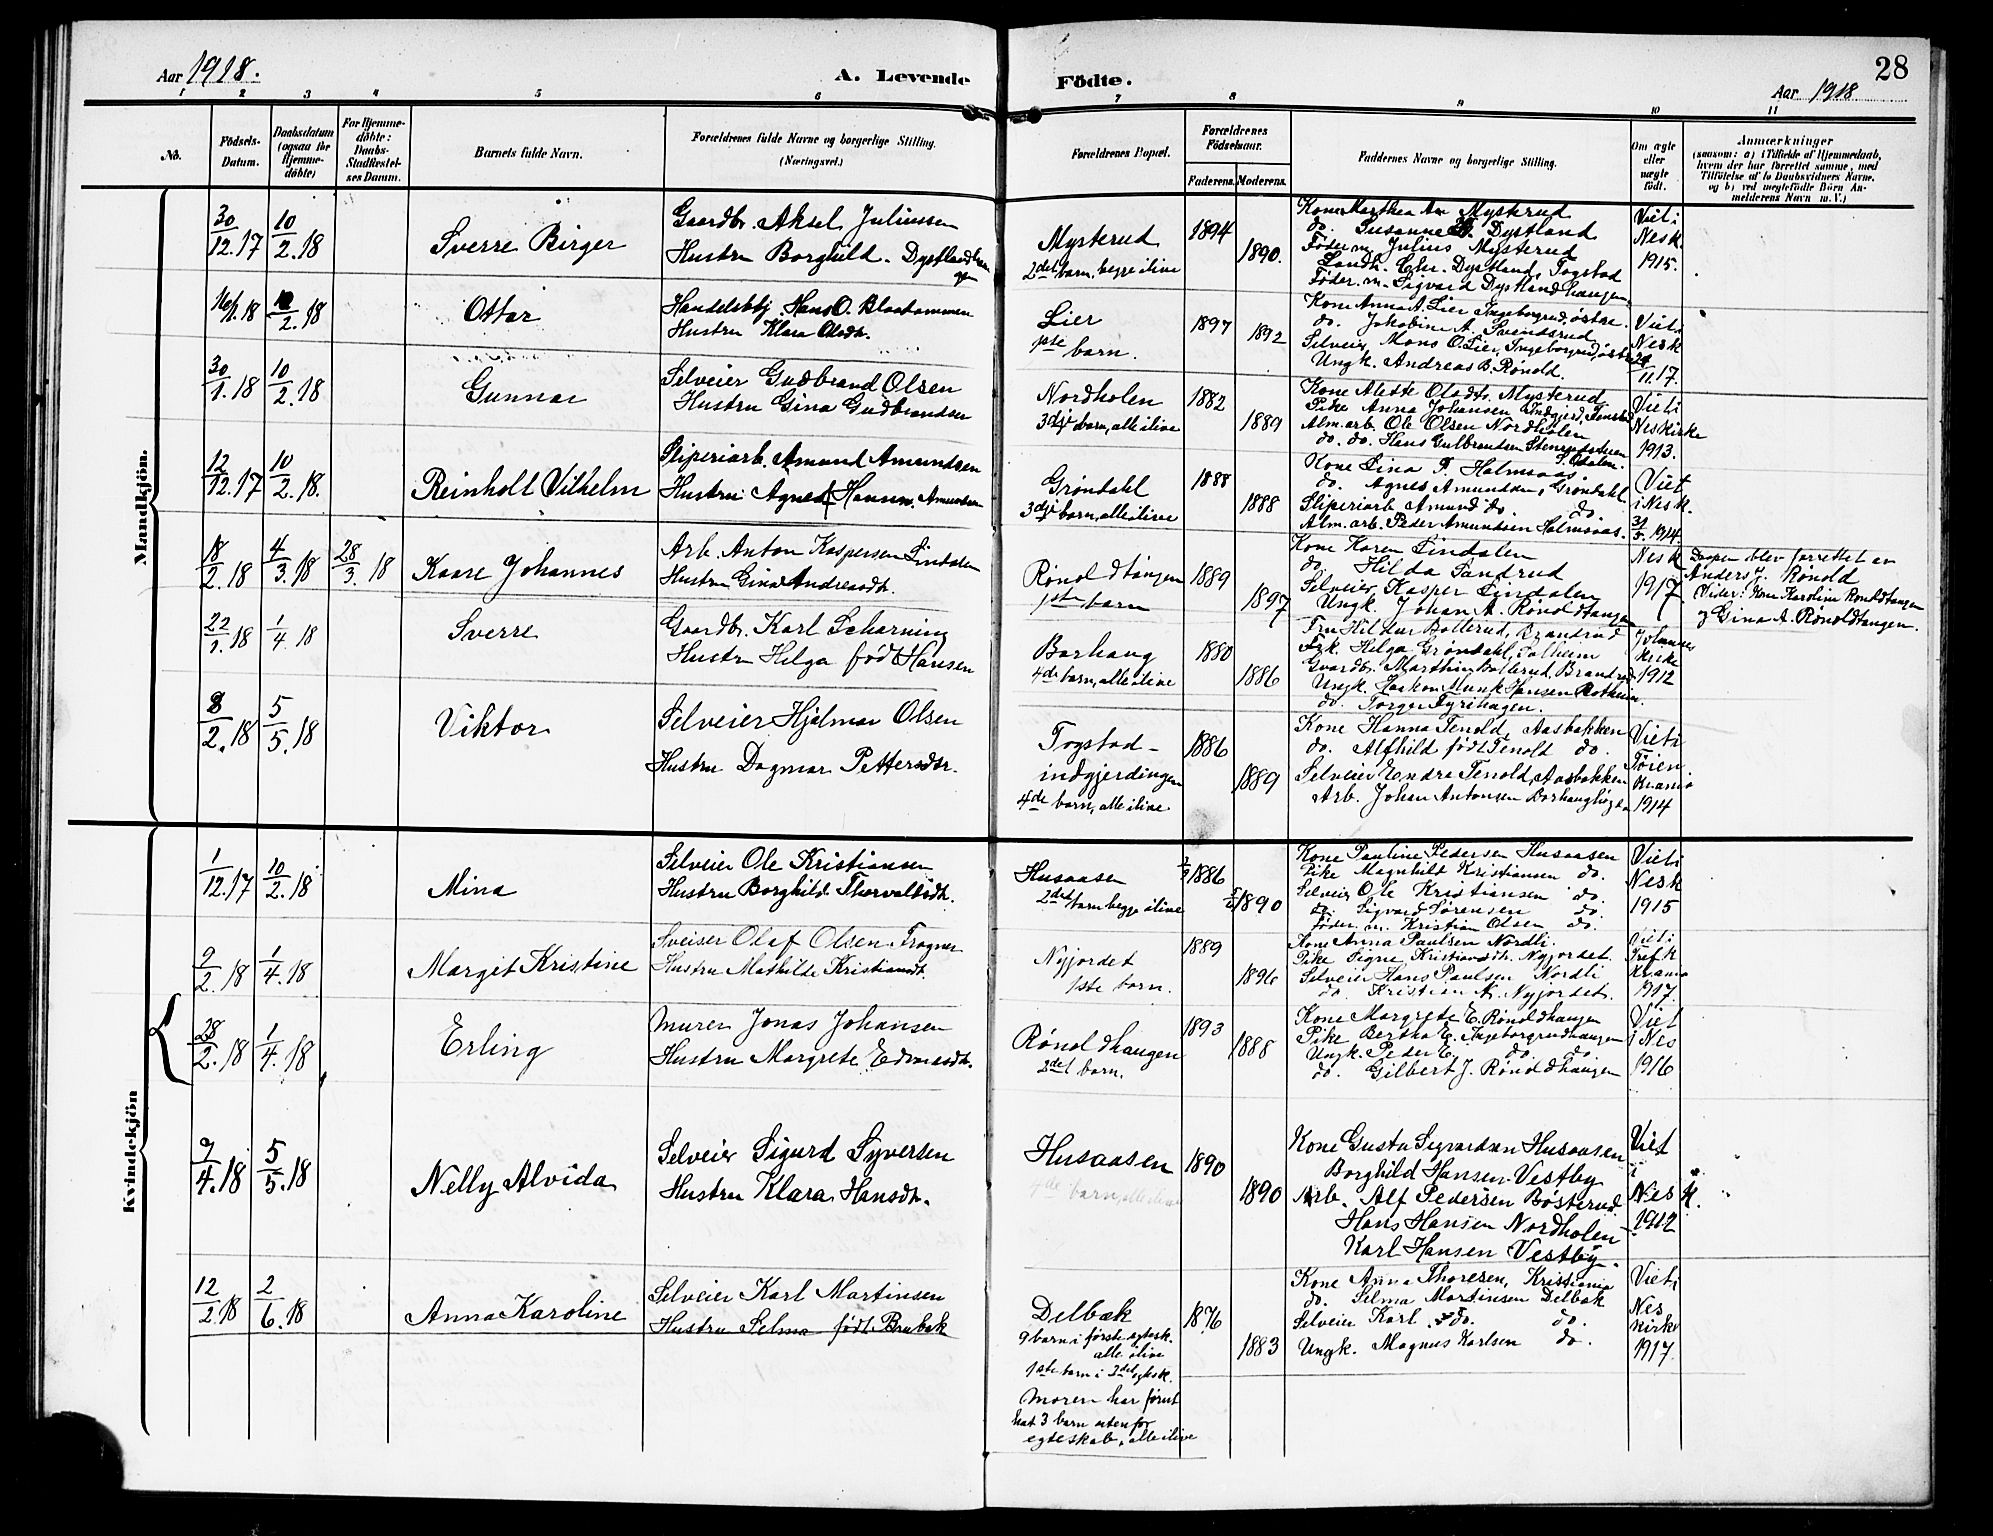 Aar 1918.
A. Levende
Födte.
28
Aar 1918
1 2 3 4 5 6 7 8 9 10 11
No.
Födsels-
Datum.
Daabsdatum
(ogsaa for
Hjemme-
döbte)
For Hjemme-
döbte:
Daabs-
Stadfæstel-
ses Datum.
Barnets fulde Navn.
Forældrenes fulde Navne og borgerlige Stilling.
(Næringsvei.)
Forældrenes Bopæl.
Forældrenes
Födselsaar.
Faderens.
Moderens.
Faddernes Navne og borgerlige Stilling.
Om ægte
eller
uægte
født.
Anmærkninger
(saasom: a) i Tilfælde af Hjemmedaab,
hvem der har forrettet samme, med
Tilføielse af to Daabsvidners Navne.
og b) ved uegtefødte Børn An-
melderens Navn m. V.)
Mandkjön.
30/12.17
10/2.18
Sverre Birger
Gaardbr. Aksel Juliussen
Hustru Borghild
Mysterud
2det barn, begge ilive
1894
1890.
Kone Marthea Mysterud
do. Susanne Dystland
Föder.m. Julius Mysterud
Landh. Chr. Dystland, Togstad
Föder.m. Sigvard Dystlandhaugen
Viet i
Nesk.
1915.
16/1.18
10/2.18
Ottar
Hans O. Blaatammen
Hustru Klara Olsdt.
Lier
1ste barn.
1897
1892
Kone Anna A. Lier Ingeborgrud, østre
do. Jakobine A. Svendsrud
Selveier Mons O. Lier, Ingeborgrud, østre
Ungk. Andreas B. Rønold.
Viet i
Nesk
11.17.
30/1.18
10/2.18
Gunnar
Selveier Gudbrand Olsen
Hustru Gina Gudbrandsen
Nordholen
3dje barn, alle ilive
1882
1889
Kone Alette Olsdt. Mysterud
Pike Anna Johansen
Alm.arb. Ole Olsen Nordholen
do. do. Hans Gulbrandsen
S. Odalen.
Viet i
Neskirke
1913.
12/12.17
10/2.18.
Reinholt Vilhelm
Sliperiarb. Amund Amundsen
Hustru Agnes Hansen Amundsen
Grøndahl
3dje barn, alle ilive
1888
1888
Kone Lina F. Halmsaas
do. Agnes Amundsen, Grøndahl
Sliperiarb. Amund do. do.
Alm. arb. Peder Amundsen Halmsaas.
Viet
i Nesk.
31/5.1914
18/2.18
4/3.18
28/3.18
Kaare Johannes
Arb. Anton Kaspersen Lindalen
Hustru Gina Andreasdt.
Rønoldtangen
1ste barn
1889
1897
Kone Karen Lindalen
do. Hilda Sandrud
Selveier Kasper Lindalen
Ungk. Johan A. Rønoldtangen
Nesk
1917
Daapen blev forrettet av
Anders J. Rønold
(Vider: Kone Karoline Rønoldtangen
og Gina A. Rønoldtangen.
22/1.18
1/4.18
Sverre
Gaardbr. Karl Scharning
Hustru Helga født Hansen
Borhaug
4de barn, alle ilive
1880
1886
Fru Hildur Bollerud, Brandrud
Frk. Helga Grøndahl
Gaardbr. Marthin Bollerud, Brandrud
Ungk. Haakon Munk Hansen
do. Torger Fyrihagen.
Johannes
Kirke
1912
8/2.18
5/5.18
Viktor
Selveier Hjalmar Olsen
Hustru Dagmar Pettersdtr.
Togstad-
indgjerdingen
4de barn, alle ilive
1886
1889
Kone Hanna Tenold, Aasbakken
do. Alfhild født Tenold do.
Selveier Endre Tenold, Aasbakken
Arb. Johan Antonsen Borhaughøgda
Viet i
Tøien
Kr.ania
1914
Kvindekjön
1/12.17
10/2.18
Mina
Selveier Ole Kristiansen
Hustru Borghild Thorvaldsdt.
Husaasen
2det barn begge ilive
1886
1890
Kone Pauline Pedersen Husaasen
Pike Magnhild Kristiansen do.
Selveier Ole Kristiansen do.
do. Sigvard Sørensen do.
Föder.m. Kristian Olsen do.
Viet i
Nesk
1915
2/2.18
1/4.18
Margit Kristine
Sveiser Olaf Olsen Frogner
Hustru Mathilde Kristiansdt.
Nyjordet
1ste barn.
1889
1896
Kone Anna Paulsen Nordli.
Pike Signe Kristiansdt. Nyjordet.
Selveier Hans Paulsen Nordli
do. Kristian A. Nyjordet.
Viet i
Kr.ania
1917.
28/2.18
1/4.18
Erling
Murer Jonas Johansen
Hustru Margrete
Rønoldhaugen
2det barn.
1893
1888
Kone Margrete E. Rønoldhaugen
Pike Bertha E. Ingeborgrudhaugen
Ungk. Peder E. do do
do. Gilbert J. Rønoldhaugen
Viet
i Nes
1916
7/4.18
5/5.18
Nelly Alvida
Selveier Sigurd Syversen
Hustru Klara Hansdt.
Husaasen
4de barn, alle ilive
1890
1890
Kone Gusta Sigvardsen Husaasen
Borghild Hansen Vestby
Arb. Alf Pedersen Bøsterud
Hans Hansen Nordholen
Karl Hansen Vestby.
Viet
i
Nes K.
1912
12/2.18
2/6.18
Anna Karoline
Selveier Karl Martinsen
Hustru Selma født Brubak
Delbæk
9 barn i første egtesk.
alle ilive
1ste barn i 2det egtesk.
Moren har forut
hat 3 barn utenfor
egteskab, alle ilive
1876
1883
Kone Anna Thoresen, Kristiania
do. Selma Martinsen Delbæk
Selveier Karl do. do.
Ungk. Magnus Karlsen do.
Viet i
Nes
Kirke
1917.